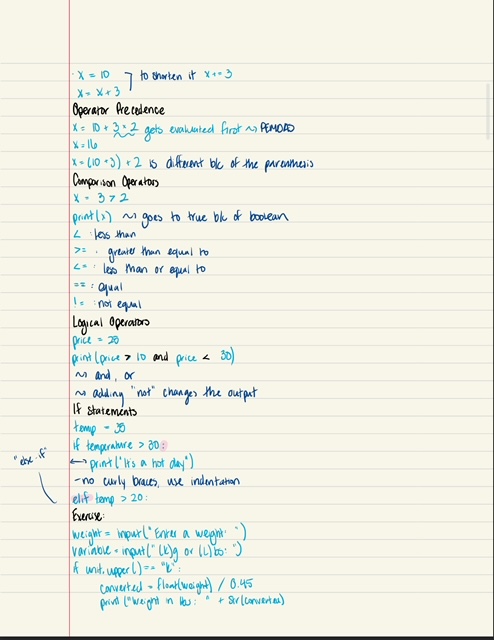 x = 10 to shorten it x += 3
x = x + 3
Operator Precedence
x = 10 + 3 * 2 gets evaluated first ~> PEMDAS
x = 16
x = (10 + 3) * 2 is different b/c of the parenthesis
Comparison Operators
x = 3 > 2
print(x) ~> goes to true b/c of boolean
< : less than
>= : greater than equal to
<= : less than or equal to
== : equal
!= : not equal
Logical Operators
price = 20
print(price > 10 and price < 30)
~> and, or
~> adding "not" changes the output
If Statements
temp = 35
if temperature > 30:
"else if" print("It's a hot day")
- no curly braces, use indentation
elif temp > 20:
Exercise:
weight = input("Enter a weight: ")
variable = input("(K)g or (L)bs: ")
if unit.upper() == "K":
converted = float(weight) / 0.45
print("Weight in lbs: " + str(converted)